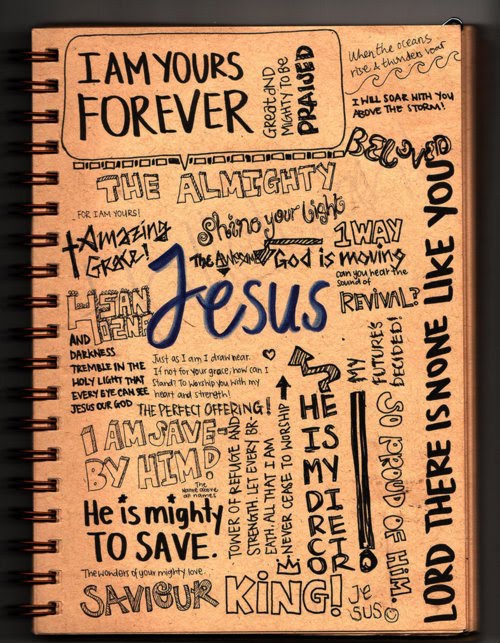 I AM YOURS
FOREVER
Great AND
MIGHTY TO BE
PRAISED
When the oceans
rise & thunders roar
I WILL SOAR WITH YOU
ABOVE THE STORM!
BELOVED
THE ALMIGHTY
FOR I AM YOURS!
Amazing
Grace!
Shine your Light
The Awesome God is moving
1WAY
can you hear the
sound of
REVIVAL?
Jesus
LORD THERE IS NONE LIKE YOU
AND
DARKNESS
TREMBLE IN THE
HOLY LIGHT THAT
EVERY EYE CAN SEE
JESUS OUR GOD
Just as I am I draw near.
If not for your grace, how can I
Stand? To worship you with my
heart and strength!
THE PERFECT OFFERING!
I AM SAVE-
BY HIM!
The
Name above
all names
He is mighty
TO SAVE.
TOWER OF REFUGE AND
STRENGTH. LET EVERY BR-
EATH, ALL THAT I AM
NEVER CEASE TO WORSHIP
HE
IS
MY
DI
RE
CT
OR
MY
FUTURE'S
DECIDED!
SO PROUD OF HIM
The wonders of your mighty love.
SAVIOUR KiNG!
JE
SUS